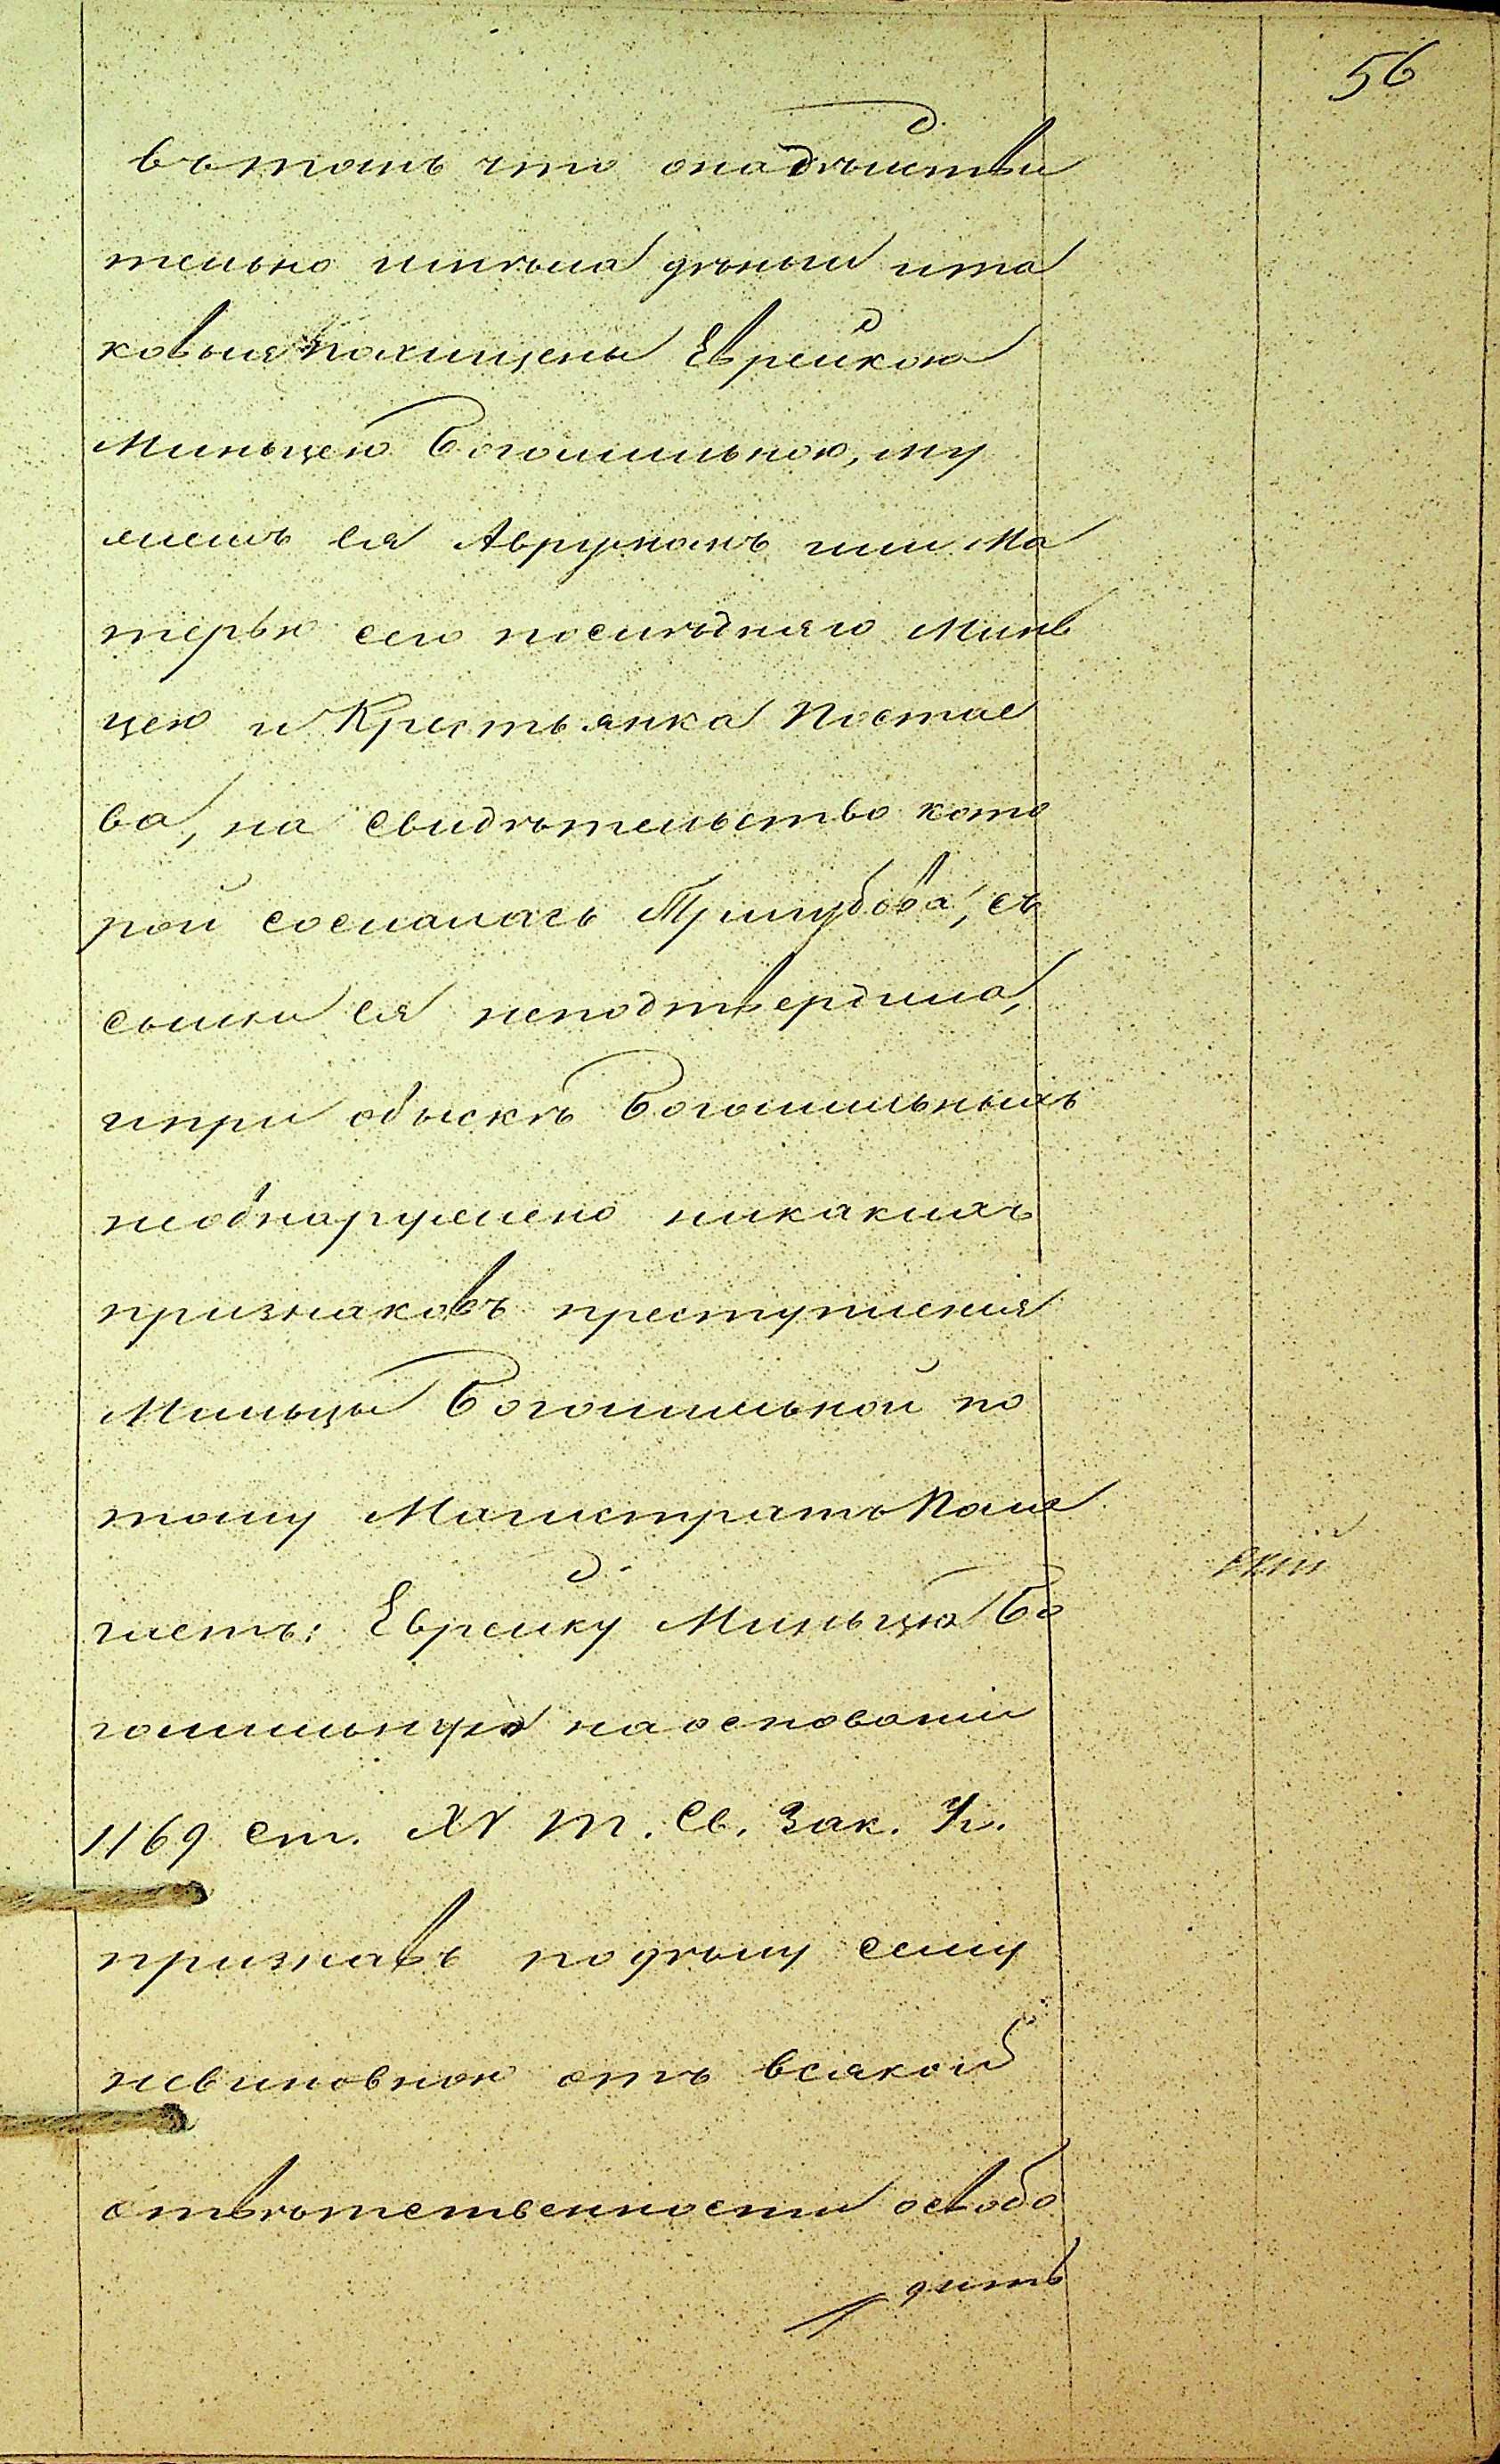 56
вътомъ что онадѣистви
тельно имѣла дѣньги ита
ковыя похищены Еврейкою
Миньцею Богомильною, му
жемъ ея Аврумомъ или Ма
терью сего послѣдняго Минь
цею и Крестьянка Постае
ва, на свидѣтельство кото
рой сослалась Тришубова, съ
сылки ея неподтвердила,
ипри обыскѣ Богомильныхъ
необнаружено никакихъ
признаковъ преступленія
Миньцы Богомильной по
тому Магистратъ Пола
гаетъ: Еврейку Миньцю Бо
гомильную наоснованіи
1169 ст. XV Т. Св. Зак. Уг.
признавъ подѣлу сему
невиновною отъ всякой
отвѣтственности освобо
дить